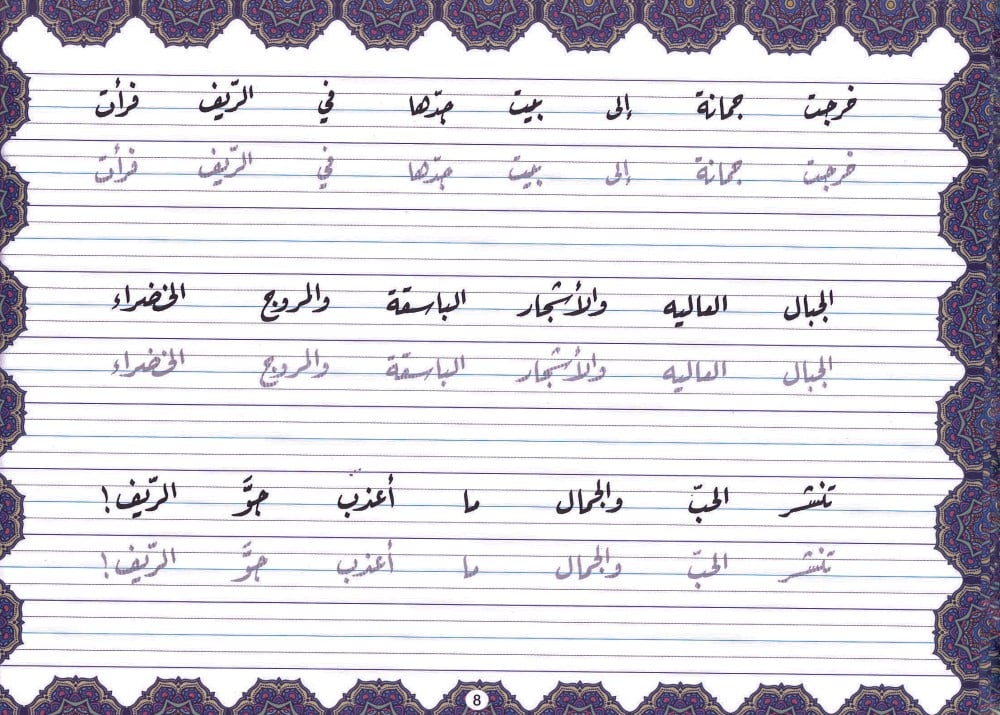 خرجت جمانة إلى بيت جدّها في الرّيف فرأت
خرجت جمانة إلى بيت جدّها في الرّيف فرأت
الجبال العاليه والأشجار الباسقة والمروج الخضراء
الجبال العاليه والأشجار الباسقة والمروج الخضراء
تنشر الحبّ والجمال ما أعذب جوَّ الرّيف!
تنشر الحبّ والجمال ما أعذب جوَّ الرّيف!
8